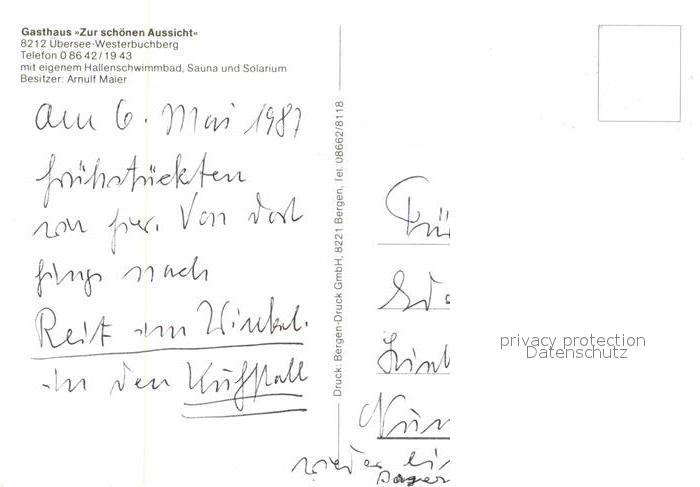 Gasthaus »Zur schönen Aussicht«
8212 Übersee-Westerbuchberg
Telefon 0 86 42 / 19 43
mit eigenem Hallenschwimmbad, Sauna und Solarium
Besitzer: Arnulf Maier
Am 6. Mai 1987
frühstückten
wir hier. Von dort
gings nach
Reit im Winkel.
in den Kuhstall
Druck: Bergen-Druck GmbH, 8221 Bergen, Tel. 08662/8118
Für
wieder
privacy protection
Datenschutz